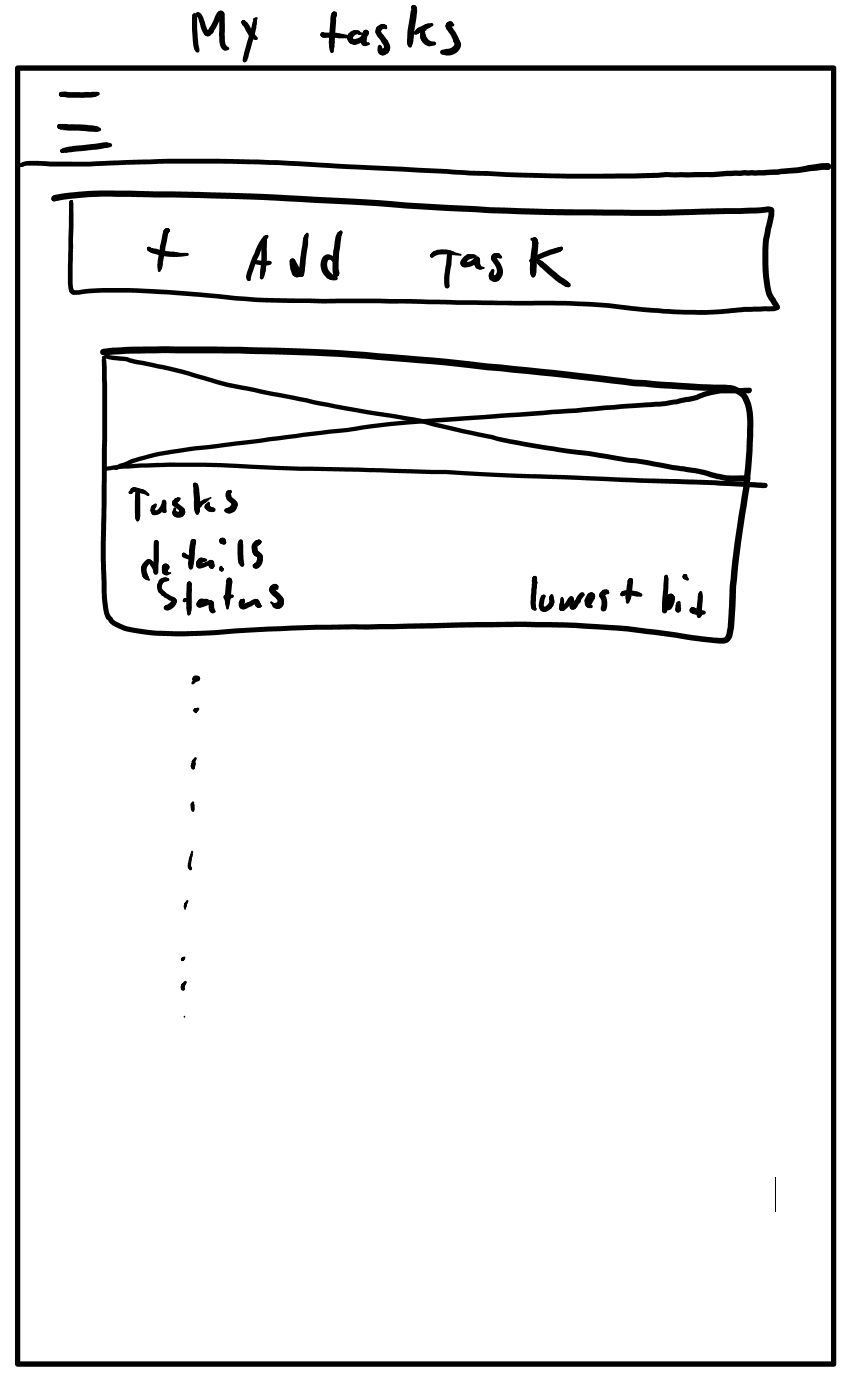 My tasks
+ Add Task
Tasks
details
Status lowest bit